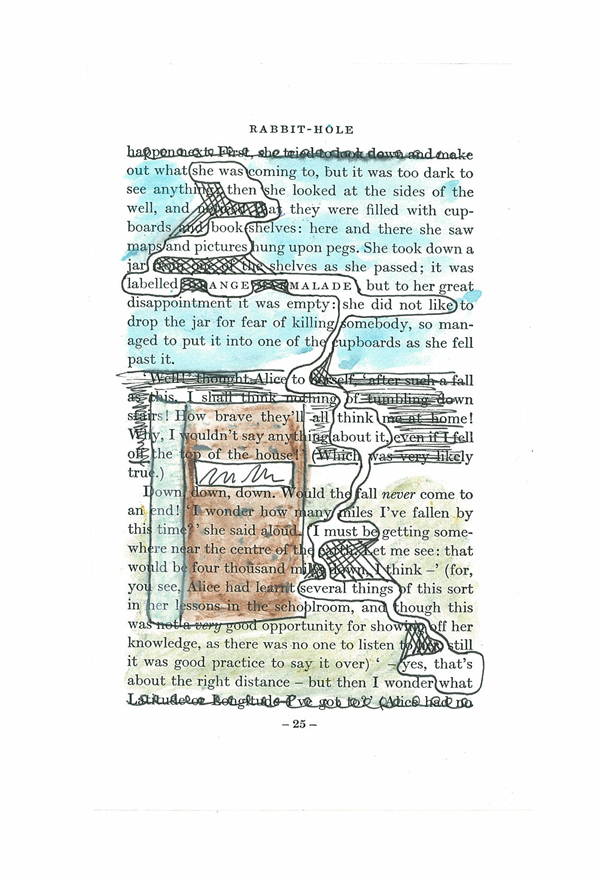 RABBIT-HOLE
happen next. First, she tried to look down and make
out what she was coming to, but it was too dark to
see anything; then she looked at the sides of the
well, and that they were filled with cup-
boards and book shelves: here and there she saw
maps and pictures hung upon pegs. She took down a
jar from one of the shelves as she passed; it was
labelled ORANGE MARMALADE, but to her great
disappointment it was empty: she did not like to
drop the jar for fear of killing somebody, so man-
aged to put it into one of the cupboards as she fell
past it.
'Well!' thought Alice to herself, 'after such a fall
as this, I shall think nothing of tumbling down
stairs! How brave they'll all think me at home!
Why, I wouldn't say anything about it, even if I fell
off the top of the house!' (Which was very likely
true.)
Down, down, down. Would the fall never come to
an end! 'I wonder how many miles I've fallen by
this time?' she said aloud. 'I must be getting some-
where near the centre of the earth. Let me see: that
would be four thousand miles down, I think –' (for,
you see, Alice had learnt several things of this sort
in her lessons in the schoolroom, and though this
was not a very good opportunity for showing off her
knowledge, as there was no one to listen to her, still
it was good practice to say it over) ' – yes, that's
about the right distance – but then I wonder what
Latitude or Longitude I've got to?' (Alice had no
– 25 –